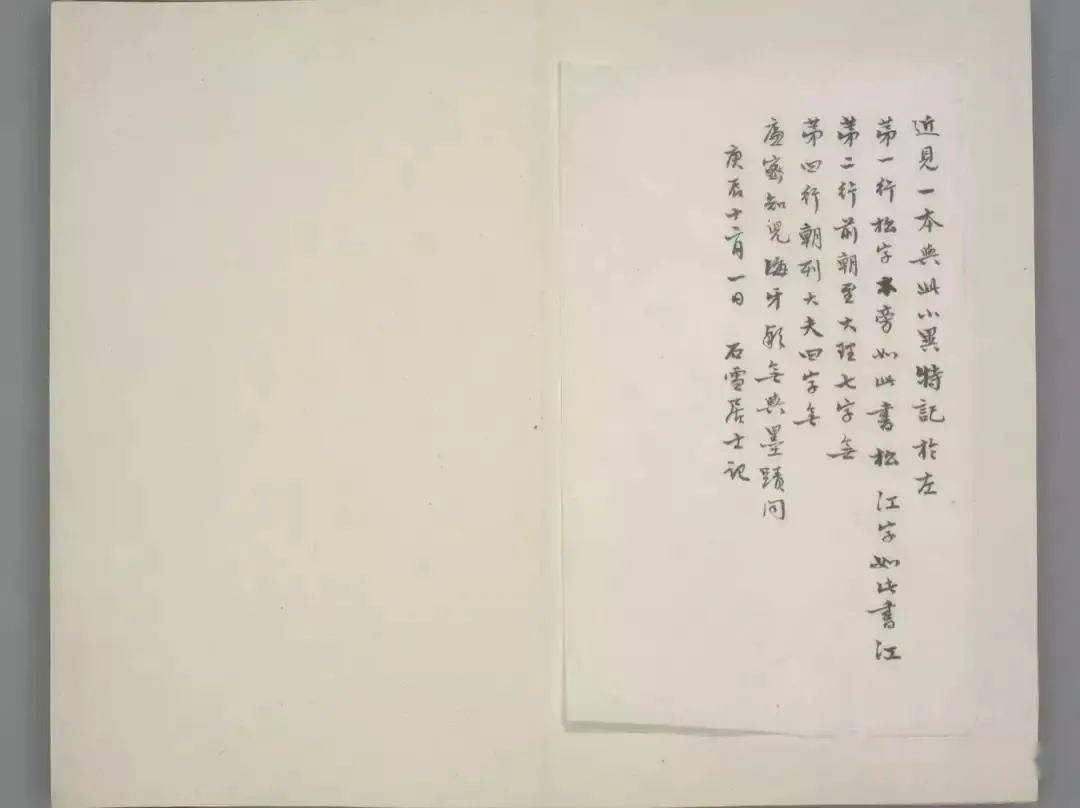 近見一本與此小異特記於左
第一行松字木旁如此書松 江字如此書江
第二行前朝至大理七字無
第四行朝列大夫四字無
廉密知兒海牙款無與墨蹟同
庚辰十二月一日 石雪居士記